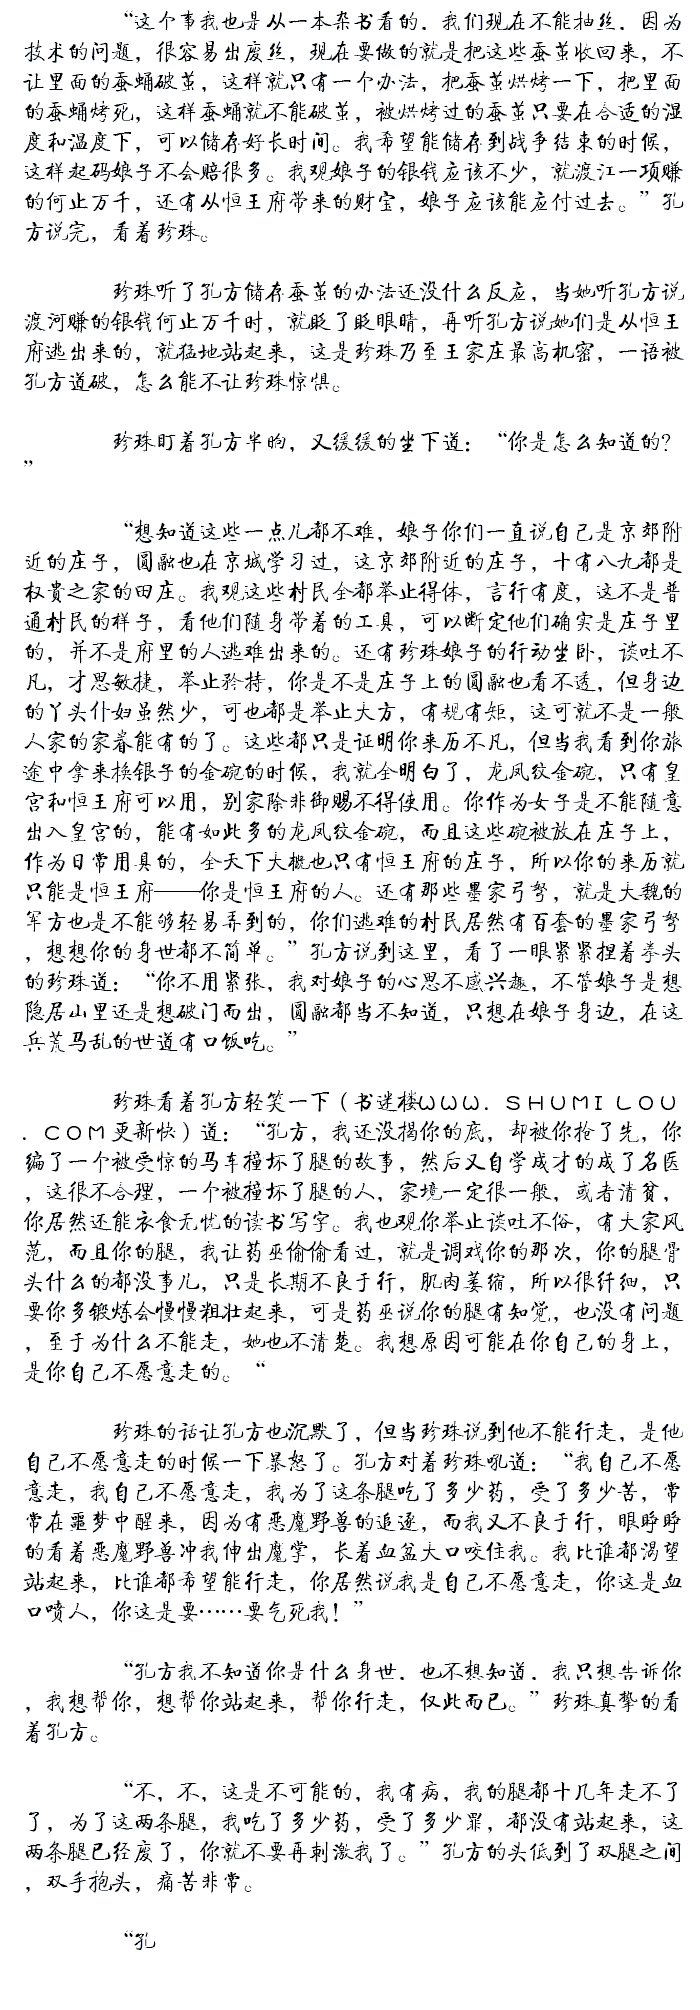 “这个事我也是从一本杂书看的，我们现在不能抽丝，因为
技术的问题，很容易出废丝，现在要做的就是把这些蚕茧收回来，不
让里面的蚕蛹破茧，这样就只有一个办法，把蚕茧烘烤一下，把里面
的蚕蛹烤死，这样蚕蛹就不能破茧，被烘烤过的蚕茧只要在合适的湿
度和温度下，可以储存好长时间。我希望能储存到战争结束的时候，
这样起码娘子不会赔很多。我观娘子的银钱应该不少，就渡江一项赚
的何止万千，还有从恒王府带来的财宝，娘子应该能应付过去。”孔
方说完，看着珍珠。
珍珠听了孔方储存蚕茧的办法还没什么反应，当她听孔方说
渡河赚的银钱何止万千时，就眨了眨眼睛，再听孔方说她们是从恒王
府逃出来的，就猛地站起来，这是珍珠乃至王家庄最高机密，一语被
孔方道破，怎么能不让珍珠惊惧。
珍珠盯着孔方半晌，又缓缓的坐下道：“你是怎么知道的？
”
“想知道这些一点儿都不难，娘子你们一直说自己是京郊附
近的庄子，圆融也在京城学习过，这京郊附近的庄子，十有八九都是
权贵之家的田庄。我观这些村民全都举止得体，言行有度，这不是普
通村民的样子，看他们随身带着的工具，可以断定他们确实是庄子里
的，并不是府里的人逃难出来的。还有珍珠娘子的行动坐卧，谈吐不
凡，才思敏捷，举止矜持，你是不是庄子上的圆融也看不透，但身边
的丫头仆妇虽然少，可也都是举止大方，有规有矩，这可就不是一般
人家的家眷能有的了。这些都只是证明你来历不凡，但当我看到你旅
途中拿来换银子的金碗的时候，我就全明白了，龙凤纹金碗，只有皇
宫和恒王府可以用，别家除非御赐不得使用。你作为女子是不能随意
出入皇宫的，能有如此多的龙凤纹金碗，而且这些碗被放在庄子上，
作为日常用具的，全天下大概也只有恒王府的庄子，所以你的来历就
只能是恒王府——你是恒王府的人。还有那些墨家弓弩，就是大魏的
军方也是不能够轻易弄到的，你们逃难的村民居然有百套的墨家弓弩
，想想你的身世都不简单。”孔方说到这里，看了一眼紧紧捏着拳头
的珍珠道：“你不用紧张，我对娘子的心思不感兴趣，不管娘子是想
隐居山里还是想破门而出，圆融都当不知道，只想在娘子身边，在这
兵荒马乱的世道有口饭吃。”
珍珠看着孔方轻笑一下（书迷楼ＷＷＷ．ＳＨＵＭＩＬＯＵ
．ＣＯＭ更新快）道：“孔方，我还没揭你的底，却被你抢了先，你
编了一个被受惊的马车撞坏了腿的故事，然后又自学成才的成了名医
，这很不合理，一个被撞坏了腿的人，家境一定很一般，或者清贫，
你居然还能衣食无忧的读书写字。我也观你举止谈吐不俗，有大家风
范，而且你的腿，我让药巫偷偷看过，就是调戏你的那次，你的腿骨
头什么的都没事儿，只是长期不良于行，肌肉萎缩，所以很纤细，只
要你多锻炼会慢慢粗壮起来，可是药巫说你的腿有知觉，也没有问题
，至于为什么不能走，她也不清楚。我想原因可能在你自己的身上，
是你自己不愿意走的。“
珍珠的话让孔方也沉默了，但当珍珠说到他不能行走，是他
自己不愿意走的时候一下暴怒了。孔方对着珍珠吼道：“我自己不愿
意走，我自己不愿意走，我为了这条腿吃了多少药，受了多少苦，常
常在噩梦中醒来，因为有恶魔野兽的追逐，而我又不良于行，眼睁睁
的看着恶魔野兽冲我伸出魔掌，长着血盆大口咬住我。我比谁都渴望
站起来，比谁都希望能行走，你居然说我是自己不愿意走，你这是血
口喷人，你这是要……要气死我！”
“孔方我不知道你是什么身世，也不想知道，我只想告诉你
，我想帮你，想帮你站起来，帮你行走，仅此而已。”珍珠真挚的看
着孔方。
“不，不，这是不可能的，我有病，我的腿都十几年走不了
了，为了这两条腿，我吃了多少药，受了多少罪，都没有站起来，这
两条腿已经废了，你就不要再刺激我了。”孔方的头低到了双腿之间
，双手抱头，痛苦非常。
“孔